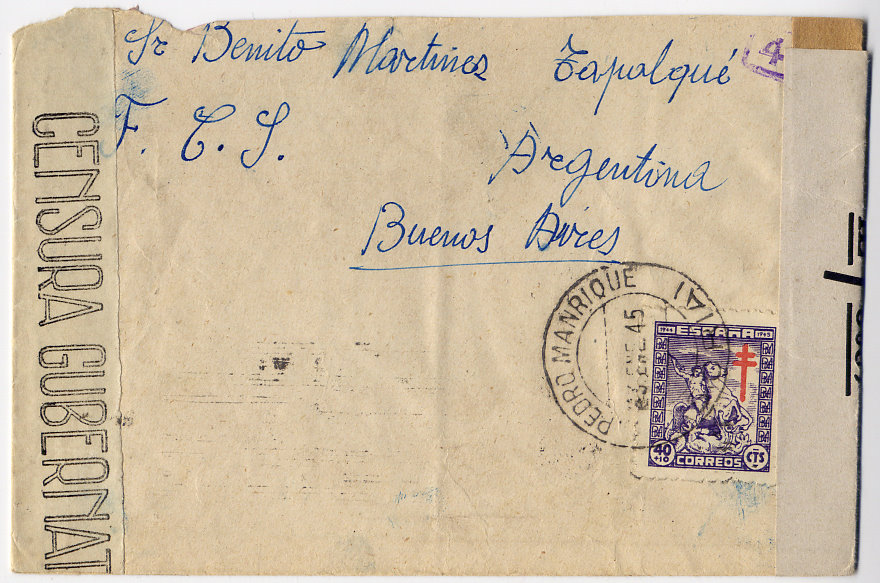 Sr Benito Martinez Tapalqué
F. C. S. Argentina
Buenos Aires
CENSURA GUBERNAT
4
PEDRO MANRIQUE
ENE. 45
1944 ESPAÑA 1945
40
+10
CORREOS
CTS